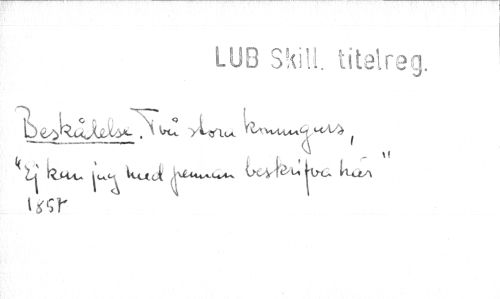 LUB Skill. titelreg.
Beskåtelse. Två stora konungars,
"Ej kan jag med pennan beskrifva här"
1857